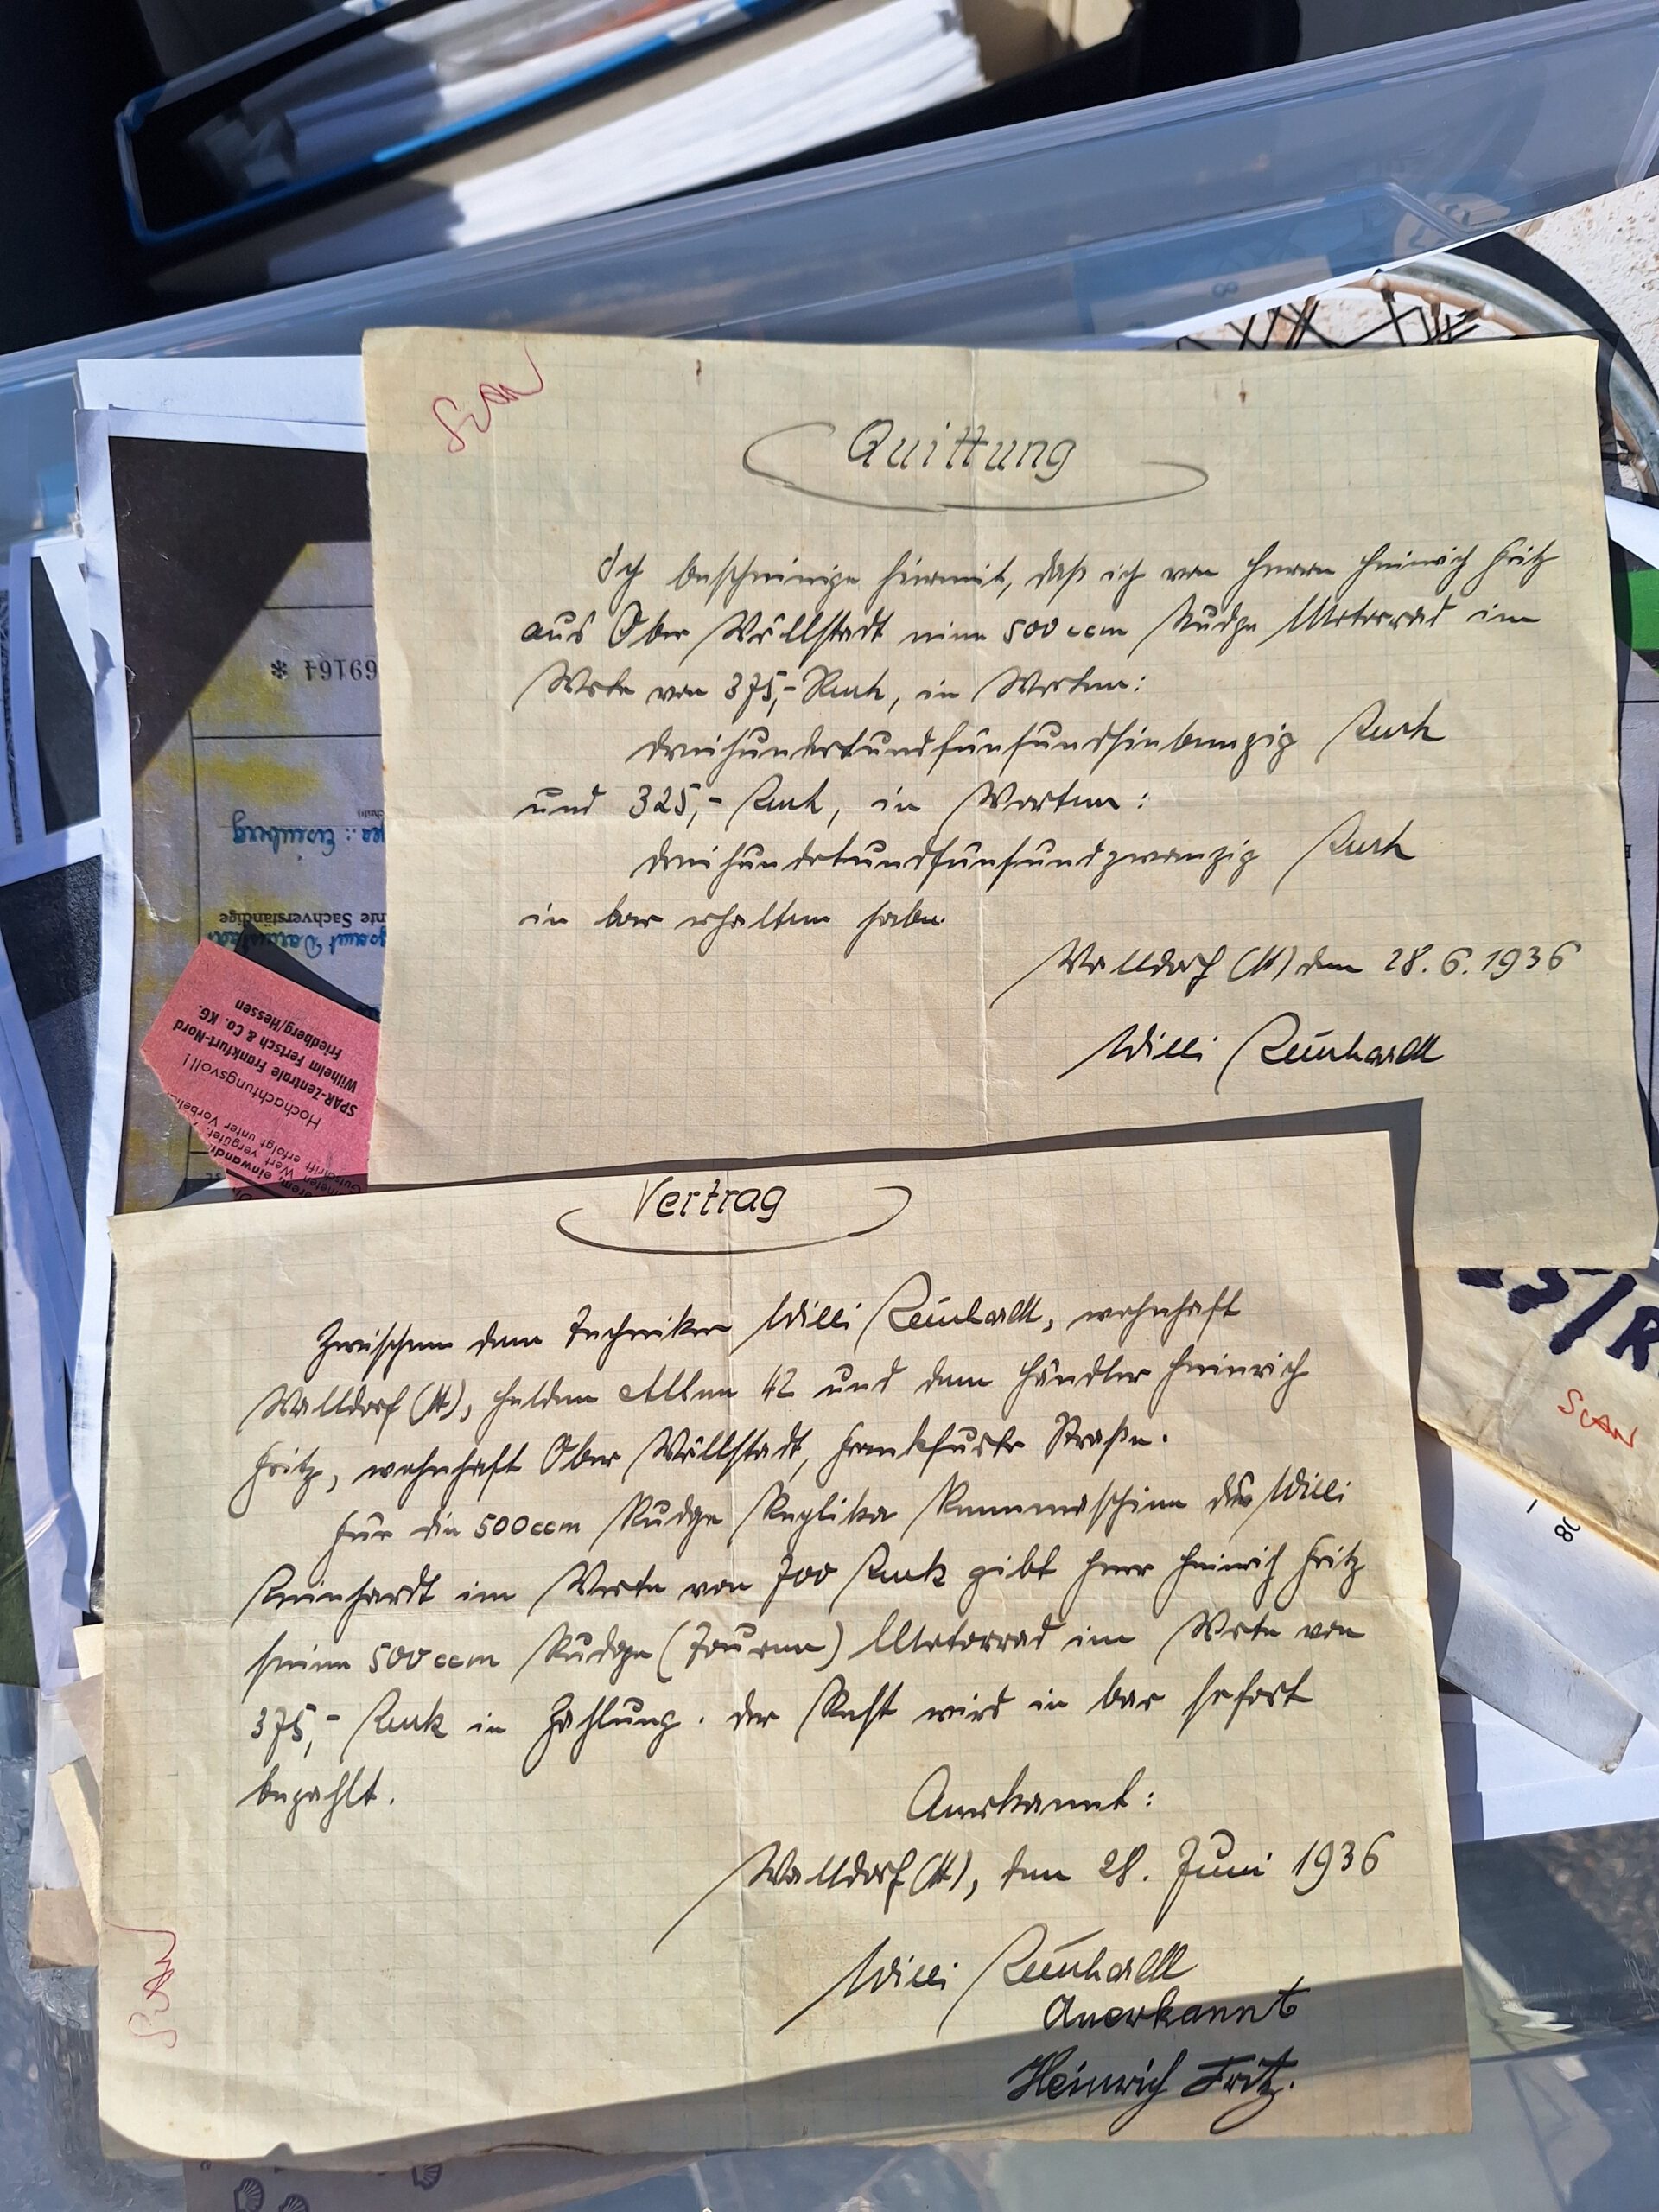 Scan
Quittung
Ich bescheinige hiermit, daß ich von Herrn Heinrich Fritz
aus Ober Wöllstadt eine 500 ccm Rudge Motorrad im
Werte von 375,- Rmk, in Worten:
dreihundertundfünfundsiebenzig Rmk
und 325,- Rmk, in Worten:
dreihundertundfünfundzwanzig Rmk
in bar erhalten habe.
Walldorf (H) den 28.6.1936
Willi Reinhardt
Vertrag
Zwischen dem Techniker Willi Reinhardt, wohnhaft
Walldorf (H), Helden Allee 42 und dem Händler Heinrich
Fritz, wohnhaft Ober Wöllstadt, Frankfurter Straße.
Für die 500ccm Rudge Replika Rennmaschine des Willi
Reinhardt im Werte von 700 Rmk gibt Herr Heinrich Fritz
seine 500 ccm Rudge (Touren) Motorrad im Werte von
375,- Rmk in Zahlung. Der Rest wird in bar sofort
bezahlt.
Anerkannt:
Walldorf (H), den 28. Juni 1936
Willi Reinhardt
Anerkannt
Heinrich Fritz.
Scan
69164 *
Eisenberg
nte Sachverständige
Hochachtungsvoll!
SPAR-Zentrale Frankfurt-Nord
Wilhelm Fertsch & Co. KG.
Friedberg/Hessen
erfolgt unter
Wert vergütet.
Scan